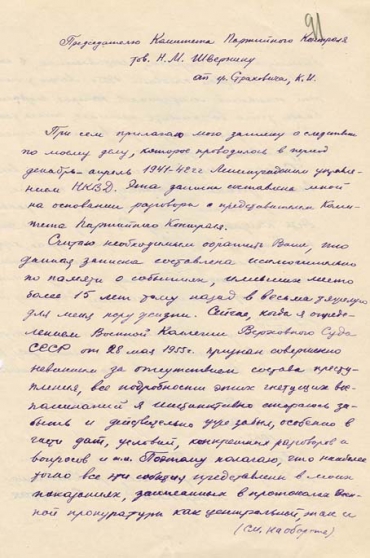 91
Председателю Комитета Партийного Контроля
тов. Н.М. Швернику
от Страховича, К.И.
При сем прилагаю мою записку о следствии
по моему делу, которое проводилось в период
декабрь - апрель 1941-42 гг Ленинградским управле-
нием НКВД. Эта записка составлена мной
на основании разговора с представителем Коми-
тета Партийного Контроля.
Считаю необходимым обратить Ваше, что
данная записка составлена исключительно
по памяти о событиях, имевших место
более 15 лет тому назад в весьма тяжелую
для меня пору жизни. Сейчас, когда я опреде-
лением Военной Коллегии Верховного Суда
СССР от 28 мая 1955 г. признан совершенно
невинным за отсутствием состава преступ-
ления, все подробности этих гнетущих вос-
поминаний я инстинктивно стараюсь за-
быть и действительно уже забыл, особенно в
части дат, условий, конкретных разговоров и
вопросов и т.п. Поэтому полагаю, что наиболее
точно все эти события представлены в моих
показаниях, записанных в протоколах Воен-
ной прокуратуры как центральной, так и
(см. на обороте)